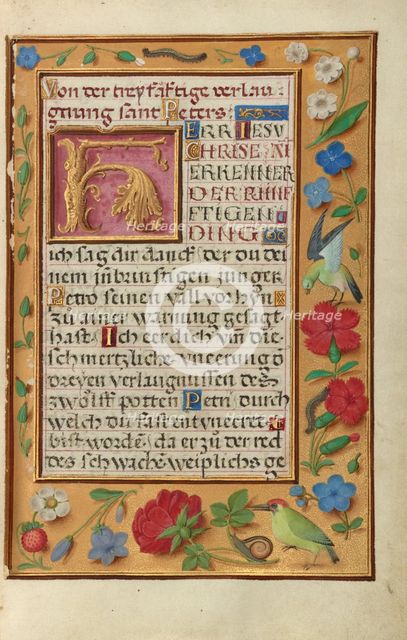 Von der treyfaltige verlau-
gnung sant Peters.
HERR IESV
CHRISTE AI
ERKENNER
DER KHVNF
FTIGEN
DING
ich sag dir danck / der du dei
nem inbrinstigen junger
Petro seinen vall vorhyn
zu ainer warnung gesagt
hast. Ich eer dich vm die
schmertzliche vneerung d
dreyen verlaugnussen des
zwolff potten Petri / durch
welch du fast entuneeret
bist worden / da er zu der red
des schwachen weiplichs ge
Heritage
Heritage
Heritage
Heritage